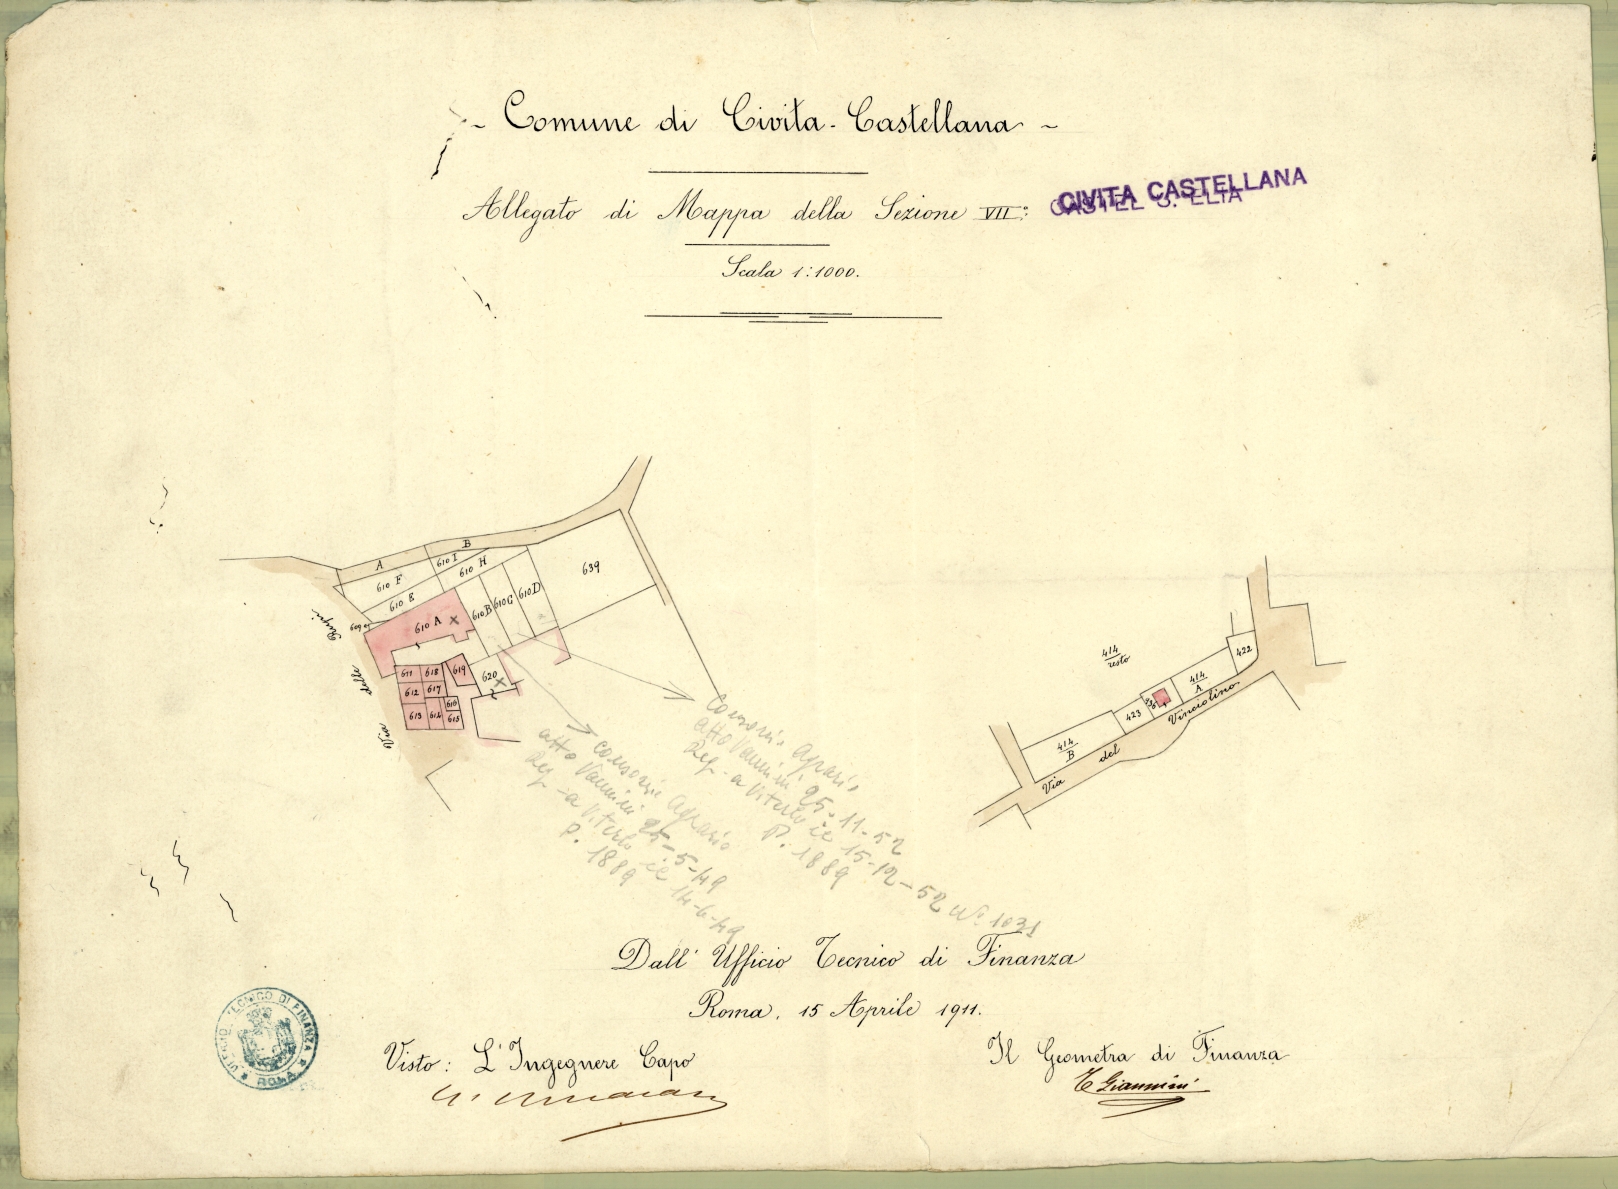 ~ Comune di Civita-Castellana ~
Allegato di Mappa della Sezione VII.a
CIVITA CASTELLANA
CASTEL S. ELIA
Scala 1:1000.
A
B
610 F
610 I
610 H
610 E
610 A
610 B
610 C
610 D
639
Via delle Rupi
611
618
619
620
612
617
616
613
614
615
414
resto
422
414
A
423
414
B
Via del Vinciolino
consorzio agrario
atto Vannini 25-5-49
Reg - a Viterbo il 14-6-49
P. 1889
Consorzio agrario
atto Vannini 25-11-52
Reg - a Viterbo il 15-12-52 N° 1031
P. 1889
Dall' Ufficio Tecnico di Finanza
Roma, 15 Aprile 1911.
Visto: L'Ingegnere Capo
Il Geometra di Finanza
Giannini
UFFICIO TECNICO DI FINANZA
ROMA